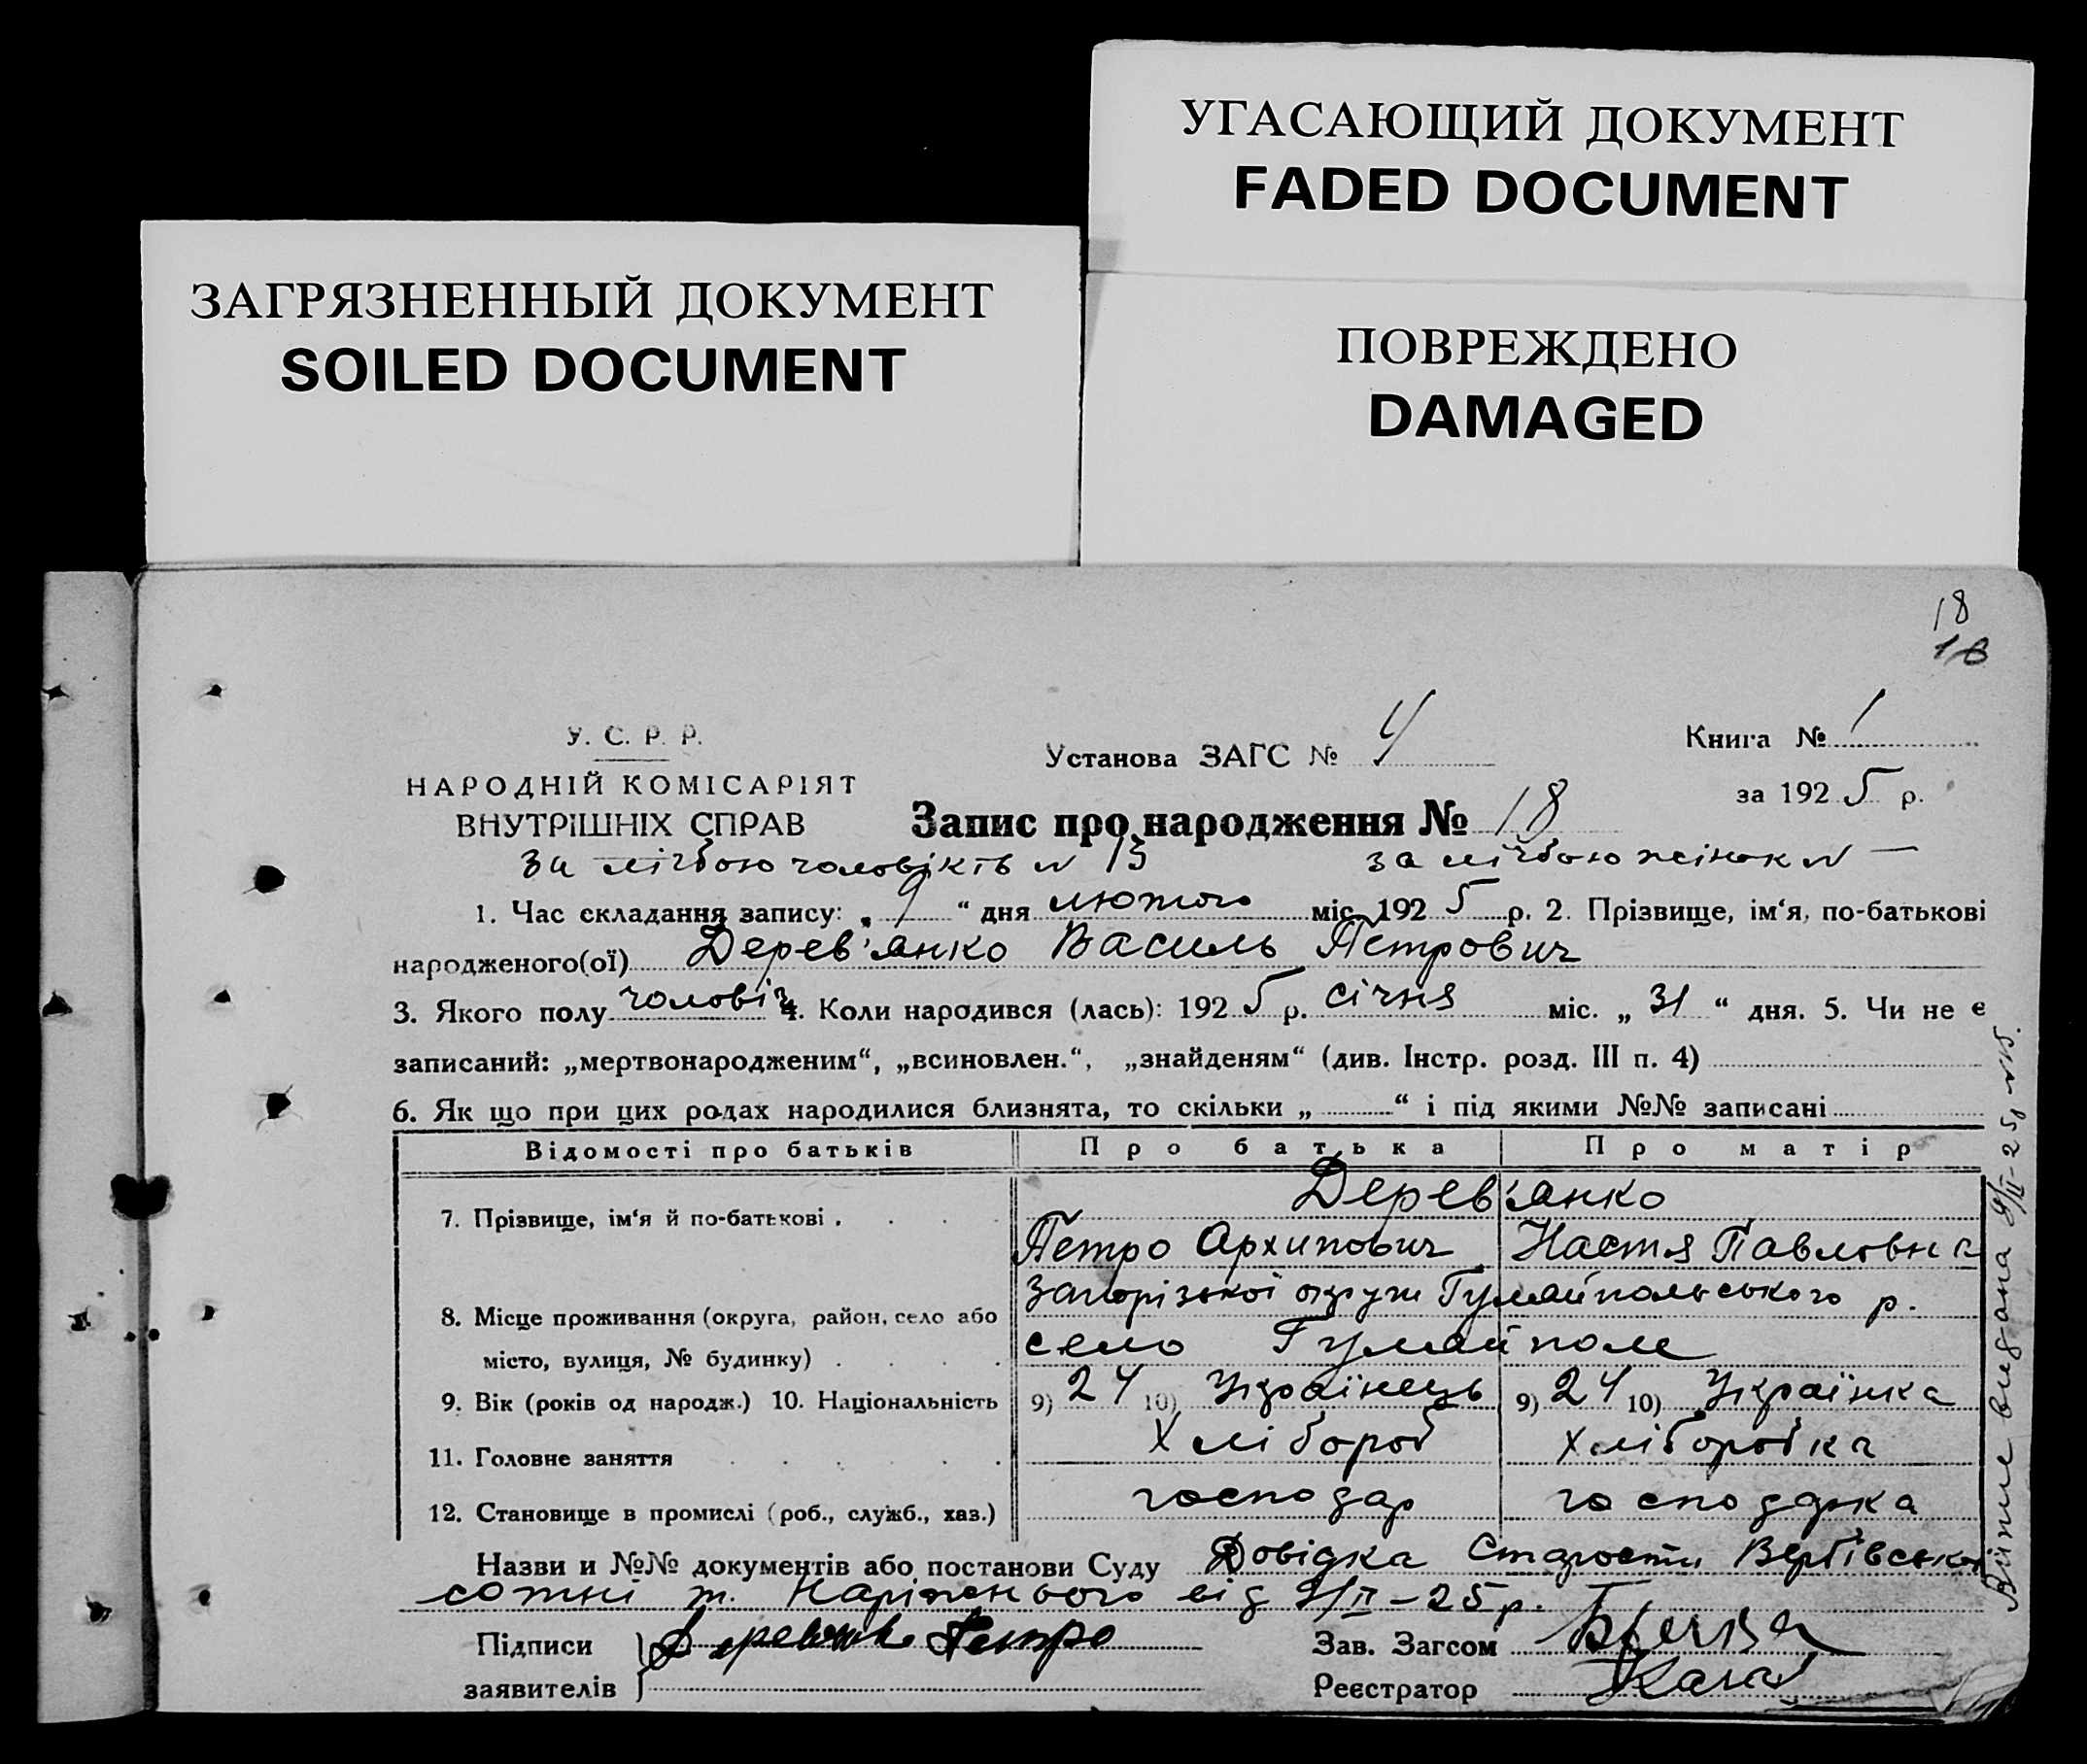 УГАСАЮЩИЙ ДОКУМЕНТ
FADED DOCUMENT
ЗАГРЯЗНЕННЫЙ ДОКУМЕНТ
SOILED DOCUMENT
ПОВРЕЖДЕНО
DAMAGED
18
18
У. С. Р. Р.
НАРОДНІЙ КОМІСАРІЯТ
ВНУТРІШНІХ СПРАВ
Установа ЗАГС № 4
Книга № 1
за 1925 р.
Запис про народження № 18
за лічбою чоловіків № 13 за лічбою жінок № —
1. Час складання запису: „ 9 “ дня лютого міс. 1925 р. 2. Прізвище, ім‘я, по-батькові
народженого(ої) Дерев'янко Василь Петрович
3. Якого полу чоловіч 4. Коли народився (лась): 1925 р. січня міс. „ 31 “ дня. 5. Чи не є
записаний: „мертвонародженим“, „всиновлен.“, „знайденям“ (див. Інстр. розд. III п. 4)
6. Як що при цих родах народилися близнята, то скільки „ “ і під якими №№ записані
Відомості про батьків Про батька Про матір
7. Прізвище, ім‘я й по-батькові . Дерев'янко
Петро Архипович Настя Павловна
8. Місце проживання (округа, район, село або Запорізької округи Гуляйпольського р.
місто, вулиця, № будинку) село Гуляйполе
9. Вік (років од народж.) 10. Національність 9) 24 10) Українець 9) 24 10) Українка
11. Головне заняття Хлібороб хліборобка
12. Становище в промислі (роб., служб., хаз.) господар господарка
Назви и №№ документів або постанови Суду Довідка Старости Вербівської
сотні т. від 9/II–25 р.
Підписи Деревянко Петро Зав. Загсом
заявителів Реєстратор
видана 9/II–25 р.